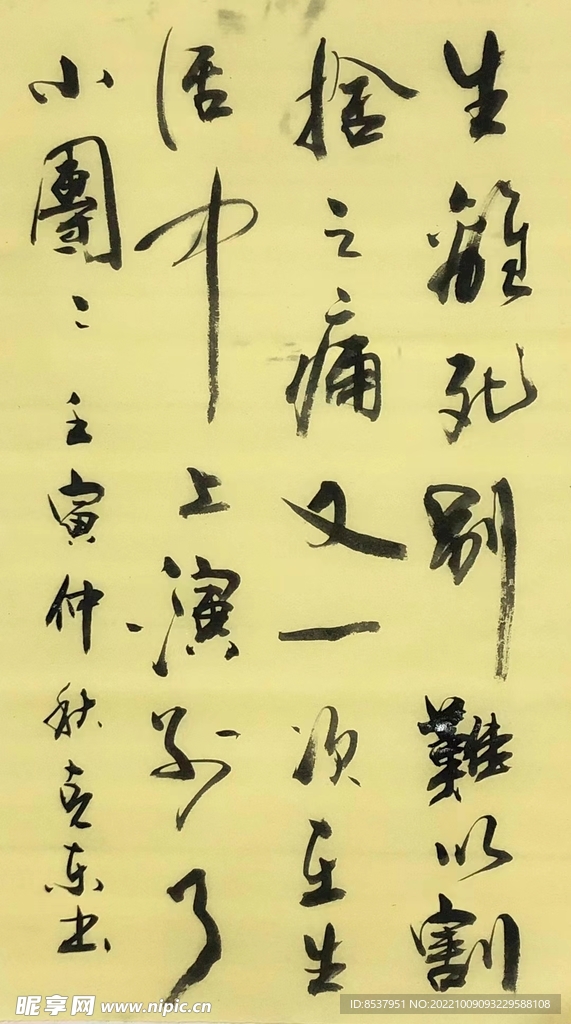 生離死別難以割
捨之痛又一次在生
活中上演別了
小團〻壬寅仲秋克東書
昵享网 www.nipic.cn
ID:8537951 NO:20221009093229588108